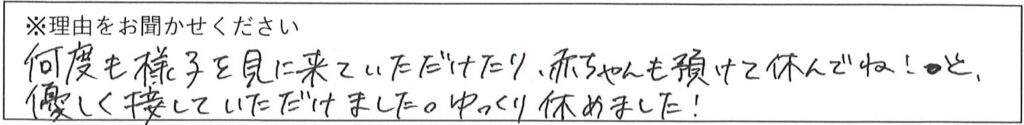 ※理由をお聞かせください
何度も様子を見に来ていただけたり、赤ちゃんも預けて休んでね！と、
優しく接していただけました。ゆっくり休めました！